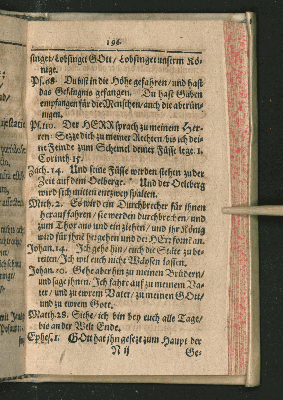 196.
singet/ Lobsinget GOtt/ Lobsinget unserm Kö-
nige.
Ps. 68. Du bist in die Höhe gefahren/ und hast
das Gefängnis gefangen. Du hast Gaben
empfangen für die Menschen/ auch die abtrün-
nigen.
Ps. 110. Der HERR sprach zu meinem Her-
ren. Setze dich zu meiner Rechten/ bis ich dei-
ne Feinde zum Schemel deiner Füsse lege. 1.
Corinth 15.
Zach. 14. Und seine Füsse werden stehen zu der
Zeit auff dem Oelberge. Und der Oelberg
wird sich mitten entzwey spalten.
Mich. 2. Es wird ein Durchbrecher für ihnen
herauf fahren/ sie werden durchbrechen/ und
zum Thor aus und ein ziehen/ und ihr König
wird für ihne hergehen und der HErr forn an.
Johan. 14. Ich gehe hin/ euch die Stätte zu be-
reiten. Ich wil euch nicht Wäysen lassen.
Johan. 20. Gehe aber hin zu meinen Brüdern/
und sage ihnen. Ich fahre auf zu meinem Va-
ter/ und zu ewrem Vater/ zu meinem GOtt/
und zu ewem Gott.
Matth. 28. Sihe/ ich bin bey euch alle Tage/
bis an der Welt Ende.
Ephes. 1. GOtt hat ihn gesezt zum Haupt der
N ij Ge-